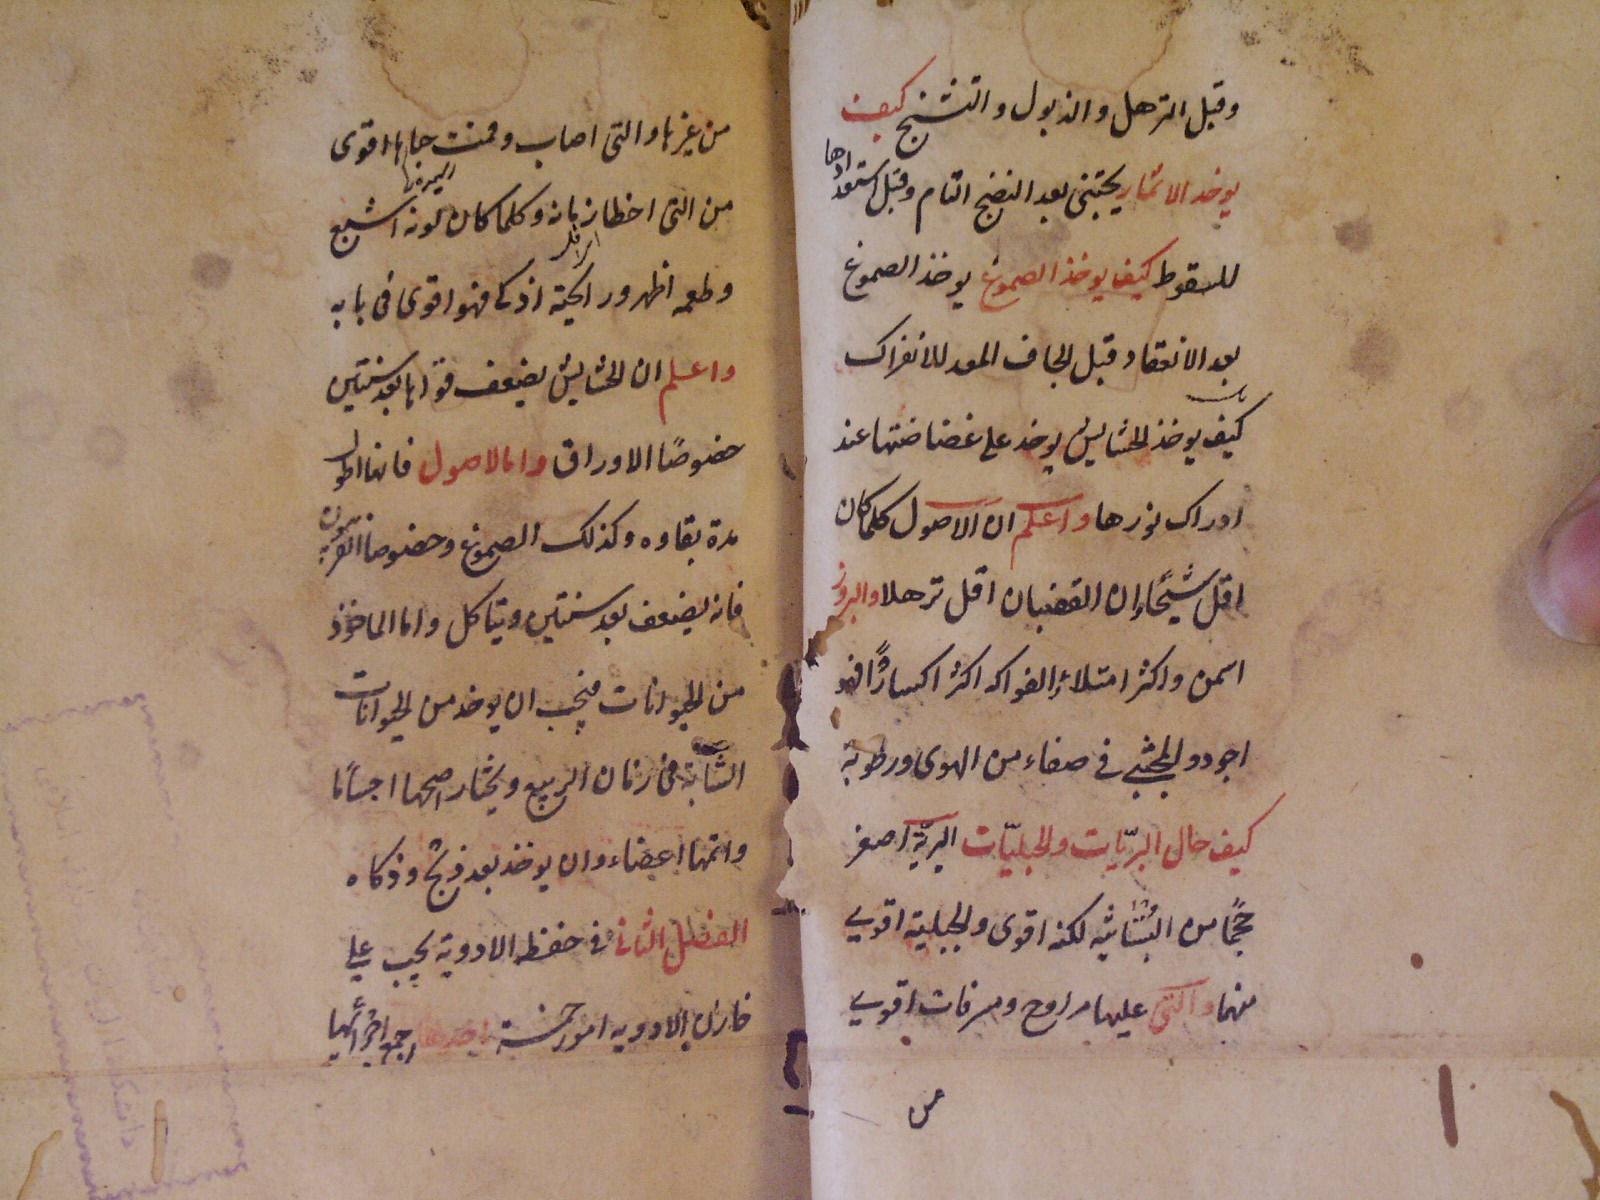 وقبل الترهل والذبول والتشنج كيف
يوخد الاثمار يجتنى بعد النضج التام وقبل استعدادها
للسقوط كيف يوخذ الصموغ يوخذ الصموغ
بعد الانعقاد وقبل الجاف المعد للانفراك
كيف يوخذ الحشايش يوخد على غضاضتها عند
ادراك بزرها واعلم ان الاصول كلما كان
اقل تشنجا ان القضبان اقل ترهلا والبزوز
اسمن واكثر امتلاء الفواكه اكثر اكسازا فهو
اجود والمجتبى فى صفاء من الهوى ورطوبة
كيف حال البريّات والجبليّات البريّة اصغر
حجمًا من البستانيه لكنه اقوى والجبلية اقوى
منها والتى عليها مراوح ومرفات اقوى
من
من غيرها والتى اصاب وقت جناها اقوى
من التى اخطا زمانه وكلما كان لونه اشبع
وطعمه اظهر ورايحته اذكا فهو اقوى فى بابه
واعلم ان الحشايش يضعف قواها بعد سنتين
خصوصًا الاوراق واما الاصول فانها اطول
مدة بقاوه وكذلك الصموغ وخصوصا الفربيون
فانه يضعف بعد سنتين ويتاكل واما الماخوذ
من الحيوانات فيجب ان يوخد من الحيوانات
الشابة فى زمان الربيع ويختار اصحها اجسامًا
واتمها اعضاء وان يوخذ بعد ذبح وذكاه
الفصل الثانى فى حفظ الادوية يجب على
خازن الادويه امور خمسة احدها جمع اجزائها